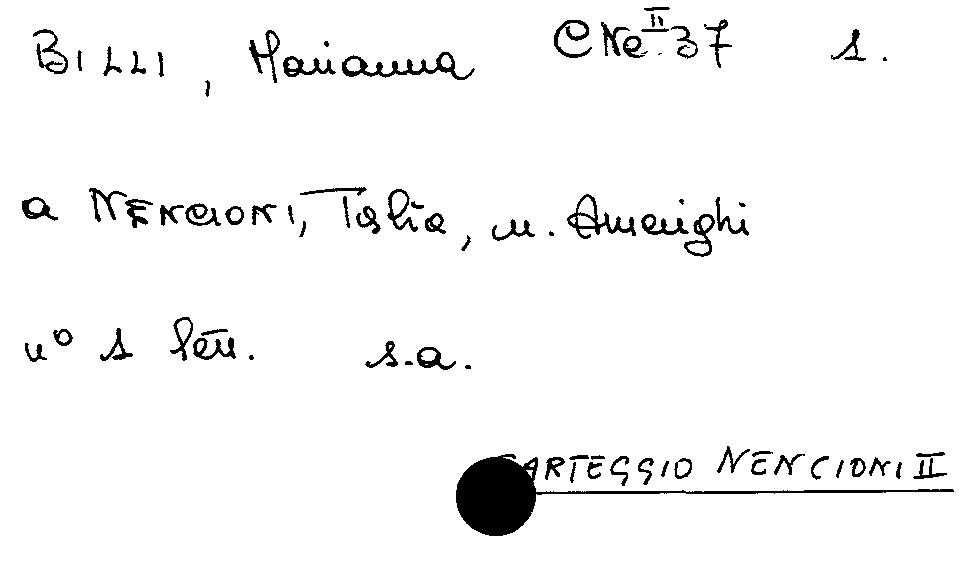 BILLI, Marianna CNe.II.37 1.
a NENCIONI, Talia, n. Amerighi
n° 1 lett. s.a.
CARTEGGIO NENCIONI II